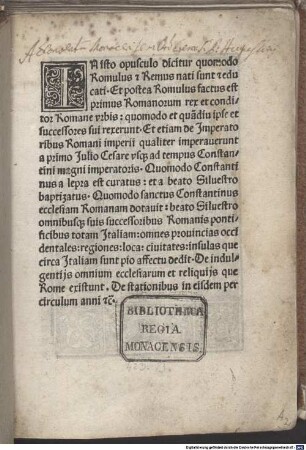 IN isto opusculo dicitur quomodo
Romulus ⁊ Remus nati sunt ⁊ edu
cati. Et postea Romulus factus est
primus Romanorum rex et condi
tor Romane vrbis: quomodo et quādiu ipse et
successores sui rexerunt. Et etiam de Imperato
ribus Romani imperii qualiter imperauerunt
a primo Julio Cesare vsq̄ ad tempus Constan
tini magni imperatoris. Quomodo Constanti
nus a lepra est curatus: et a beato Siluestro
baptizatus. Quomodo sanctus Constantinus
ecclesiam Romanam dotauit: ⁊ beato Siluestro
omnibusq̄ suis successoribus Romanis ponti
ficibus totam Italiam: omnes prouincias occi
dentales: regiones: loca: ciuitates: insulas que
circa Italiam sunt pio affectu dedit. De indul
gentijs omnium ecclesiarum et reliquijs que
Rome existunt. De stationibus in eisdem per
circulum anni ⁊c.
BIBLIOTHECA
REGIA
MONACENSIS.
Digitalisierung gefördert durch die Deutsche Forschungsgemeinschaft